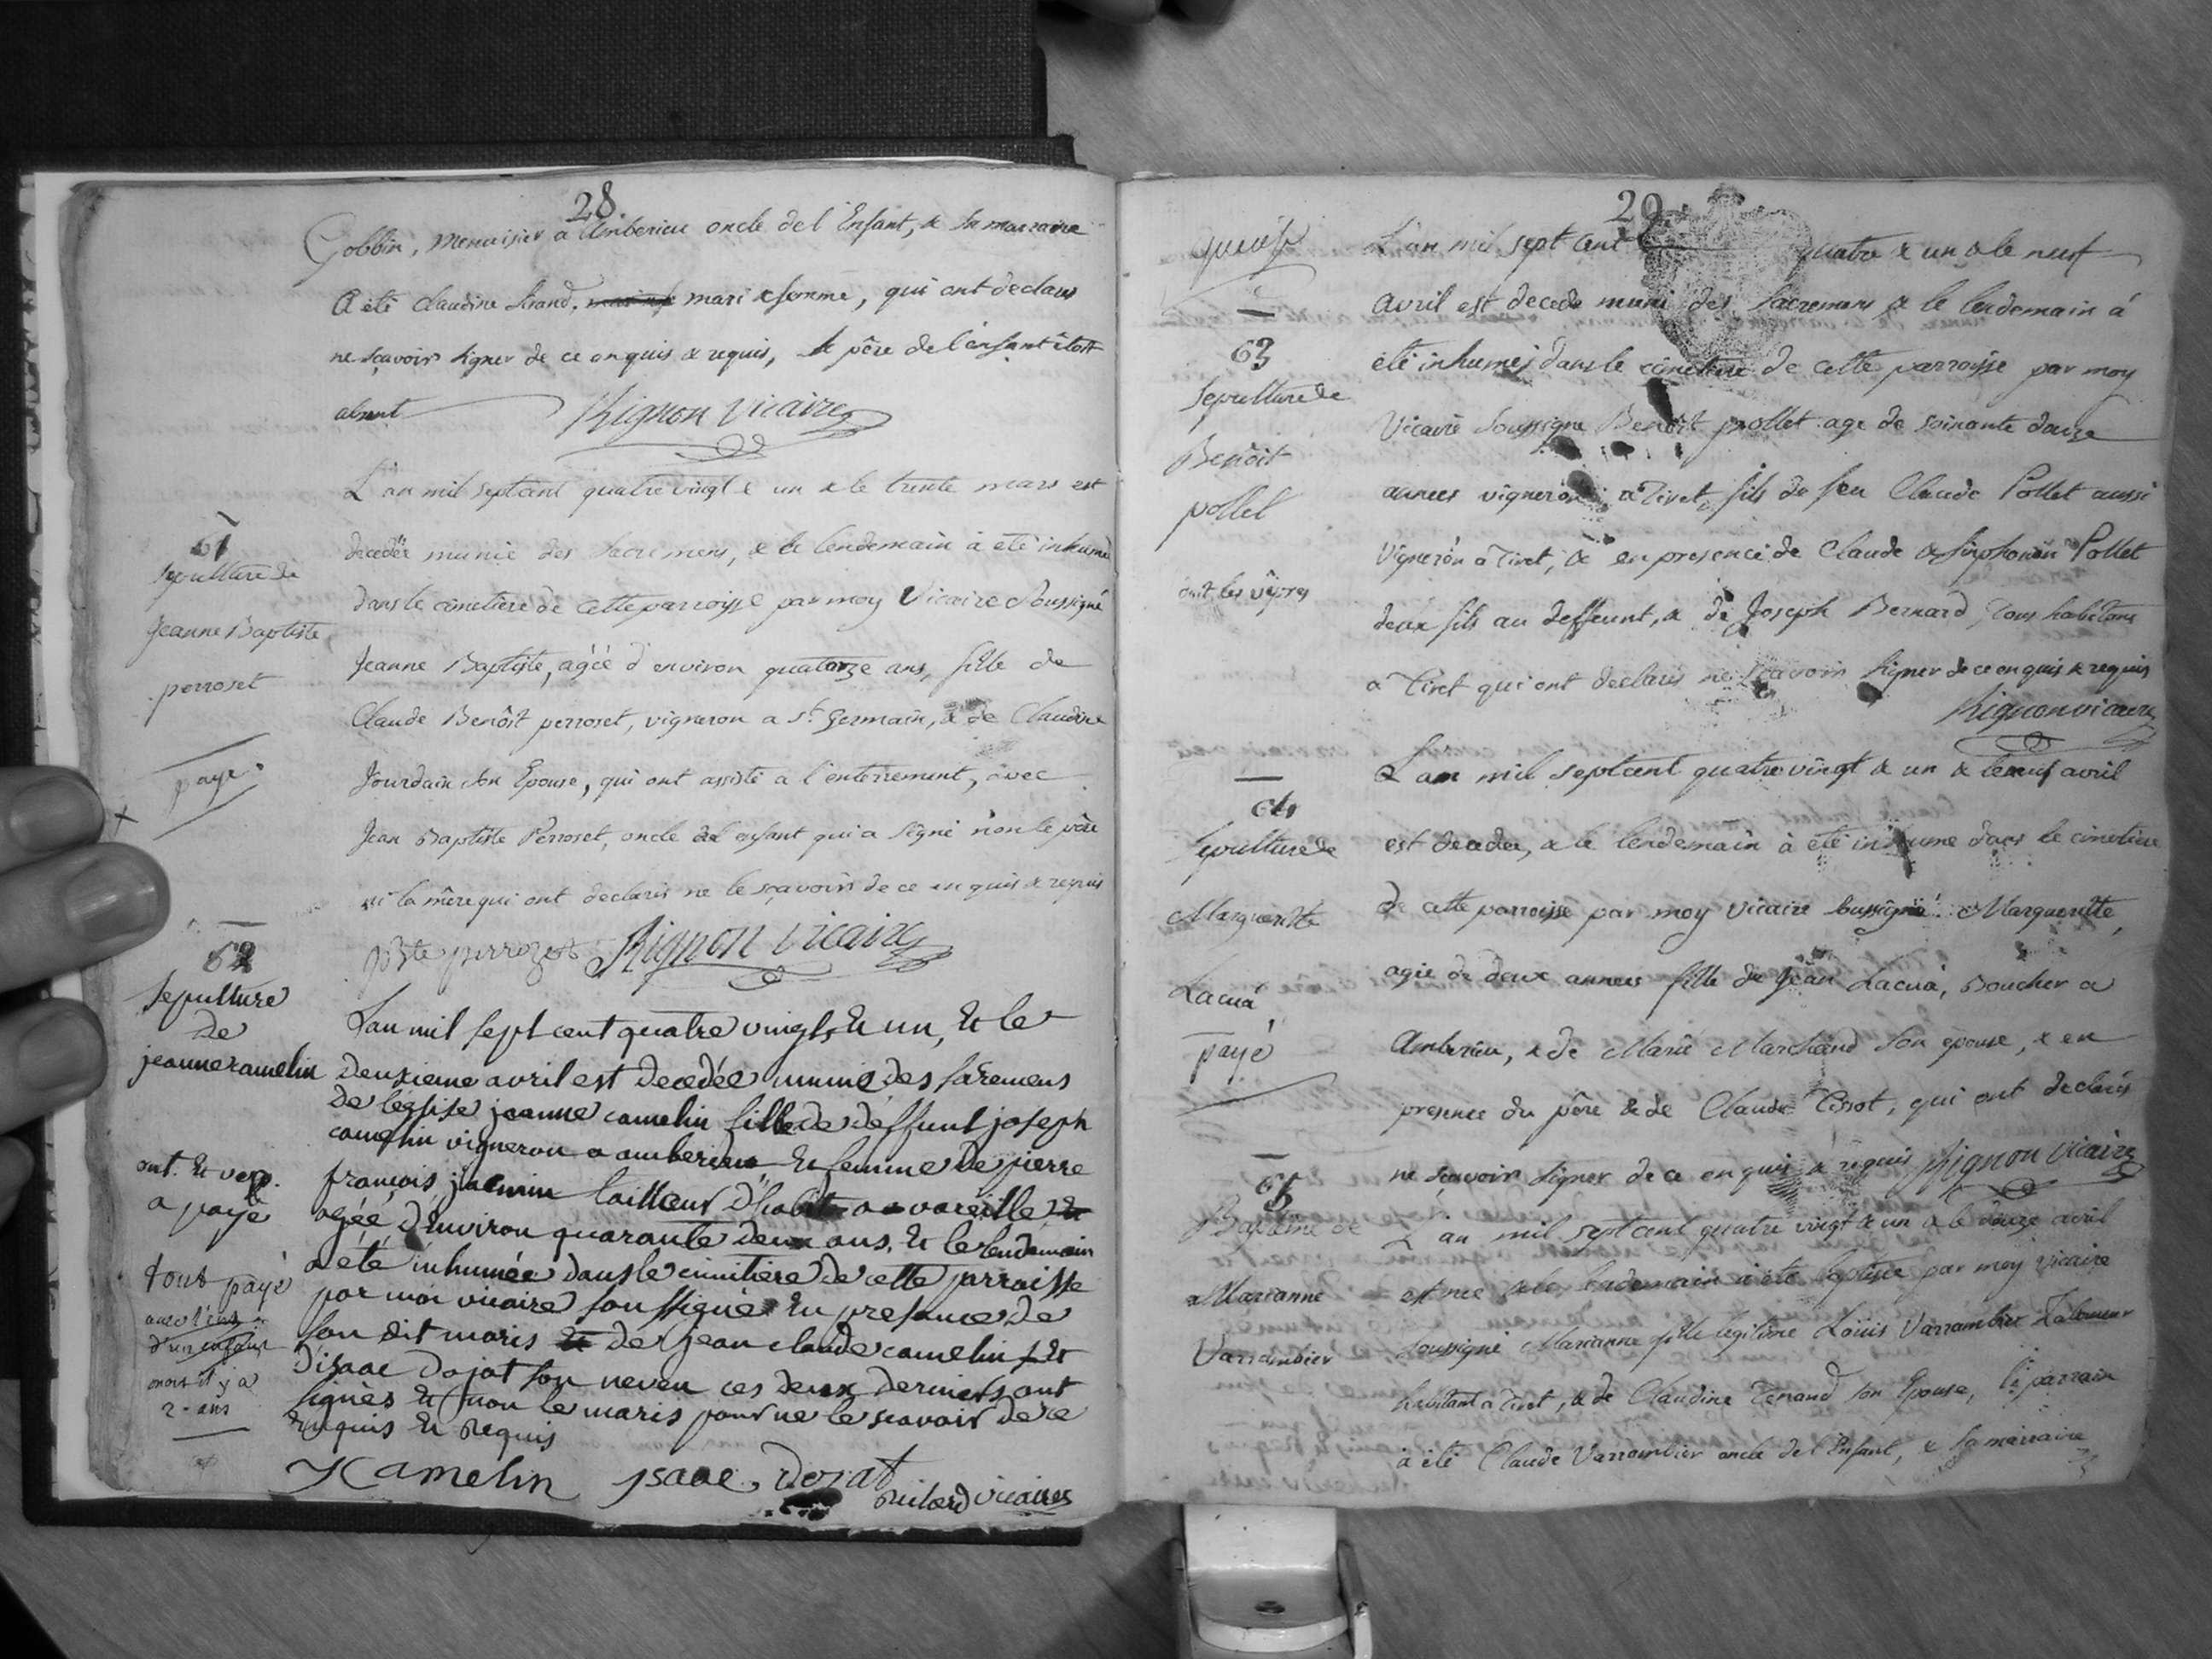 28.
Gobbin, Menuisier a Amberieu oncle de l'Enfant, & sa marraine
A été Claudine mari & femme, qui ont declaré
ne sçavoir signer de ce enquis & requis, le père de l'enfant étoit
absent Rignon Vicaire
61
sepulture de
Jeanne Baptiste
perroset
payé
L'an mil sept cent quatre vingt & un & le trente mars est
decedée munie des Sacremens, & le lendemain à été inhumé
dans le cimetiere de cette parroisse par moy Vicaire Soussigné
Jeanne Baptiste, agée d'environ quatorze ans, fille de
Claude Benôit perroset, vigneron a St. Germain, & de Claudine
Jourdain son Epouse, qui ont assisté a l'enterrement, avec
Jean Baptiste Perroset, oncle del enfant qui a signé non le père
ni la mère qui ont declarés ne le sçavoir de ce enquis & requis
jbste perrozet Rignon Vicaire
62
sepulture
de
jeanne camelin
ont. Et vep.
a payé
tout payé
d'un enfant
mort il y a
2 - ans
Lan mil sept cent quatre vingts Et un, Et le
deuxieme avril est decedée munie des sacremens
de leglise jeanne camelin fille de deffunt joseph
camelin vigneron a amberieu Et femme de pierre
françois jacmin tailleur d'habit a vareille
agée d'Environ quarante deux ans, Et le lendemain
a été inhumée dans le cimitiere de cette parroisse
par moi vicaire soussigné En presence de
son dit maris Et de jean claude camelin Et
d'isaac dojat son neveu ces deux derniers ont
signés Et non le maris pour ne le scavoir de ce
Enquis Et Requis
Kamelin ysaac Dojat
vicaire
29
63
Sepulture de
Benôit
pollet
ont les vêpres
L'an mil sept cent quatre & un & le neuf
avril est decedé muni des Sacremens & le lendemain à
été inhumé dans le cimetiere de cette parroisse par moy
Vicaire Soussigné Benôit pollet agé de soixante douze
années vigneron a Tiret, fils de feu Claude Pollet aussi
Vigneron à Tiret, & en presence de Claude & Sinphorien Pollet
deux fils au deffunt, & de Joseph Bernard, tous habitans
a Tiret qui ont declarés ne sçavoir signer de ce enquis & requis
Rignon vicaire
64
Sepulture de
Marguerite
Lacua
payé
L'an mil sept cent quatre vingt & un & le neuf avril
est decedée, & le lendemain à été inhumé dans le cimetiere
de cette parroisse par moy vicaire Soussigné Marguerite,
agée de deux années fille de Jean Lacua, Boucher a
Amberieu, & de Marie Marchand son épouse, & en
presence du père & de Claude Tissot, qui ont declarés
ne sçavoir signer de ce enquis & requis Rignon Vicaire
65
Baptême de
Marianne
Varrambier
L'an mil sept cent quatre vingt & un & le douze avril
est née & le lendemain à été baptisée par moy vicaire
soussigné Marianne fille legitime Loüis Varrambier Laboureur
habitant a Tiret, & de Claudine Tenand son Epouse, le parrain
à été Claude Varrambier oncle de l'Enfant, & la marraine